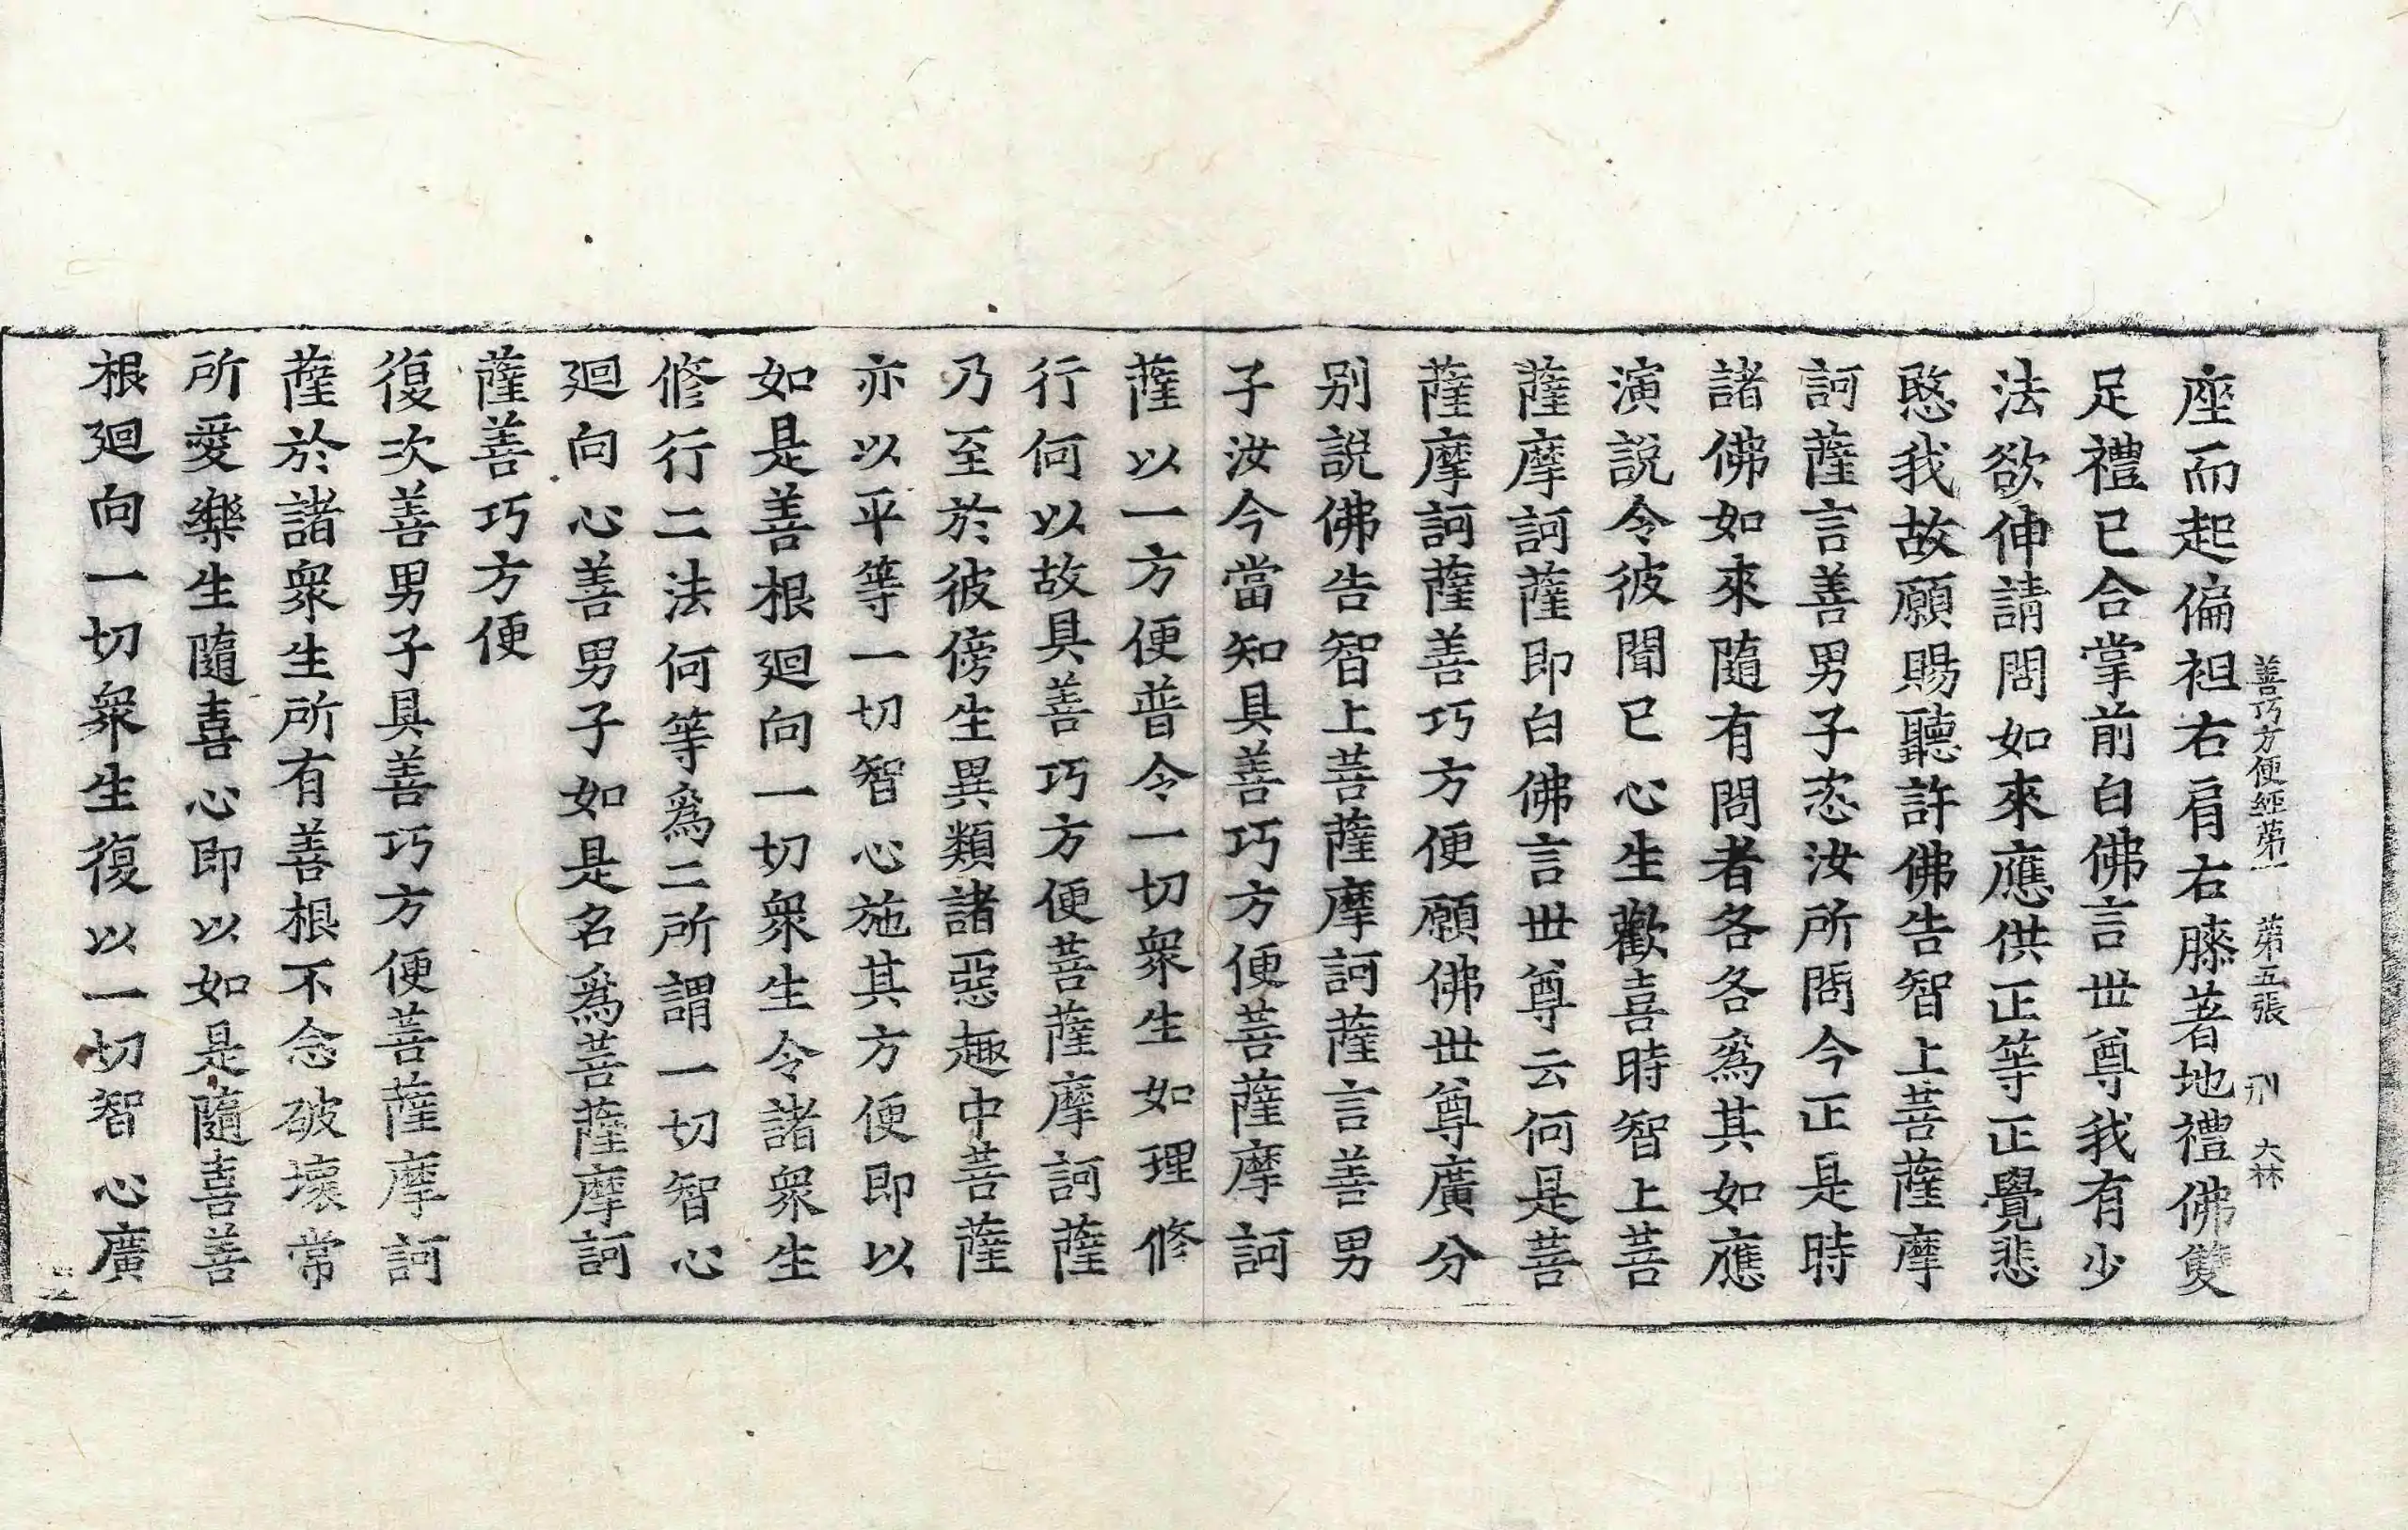 善巧方便經第一 第五張 刑 大林
座而起偏袒右肩右膝著地禮佛雙
足禮已合掌前白佛言世尊我有少
法欲伸請問如來應供正等正覺悲
愍我故願賜聽許佛告智上菩薩摩
訶薩言善男子恣汝所問今正是時
諸佛如來隨有問者各各爲其如應
演說令彼聞已心生歡喜時智上菩
薩摩訶薩即白佛言世尊云何是菩
薩摩訶薩善巧方便願佛世尊廣分
別說佛告智上菩薩摩訶薩言善男
子汝今當知具善巧方便菩薩摩訶
薩以一方便普令一切衆生如理修
行何以故具善巧方便菩薩摩訶薩
乃至於彼傍生異類諸惡趣中菩薩
亦以平等一切智心施其方便即以
如是善根廻向一切衆生令諸衆生
修行二法何等爲二所謂一切智心
廻向心善男子如是名爲菩薩摩訶
薩善巧方便
復次善男子具善巧方便菩薩摩訶
薩於諸衆生所有善根不念破壞常
所愛樂生隨喜心即以如是隨喜善
根廻向一切衆生復以一切智心廣